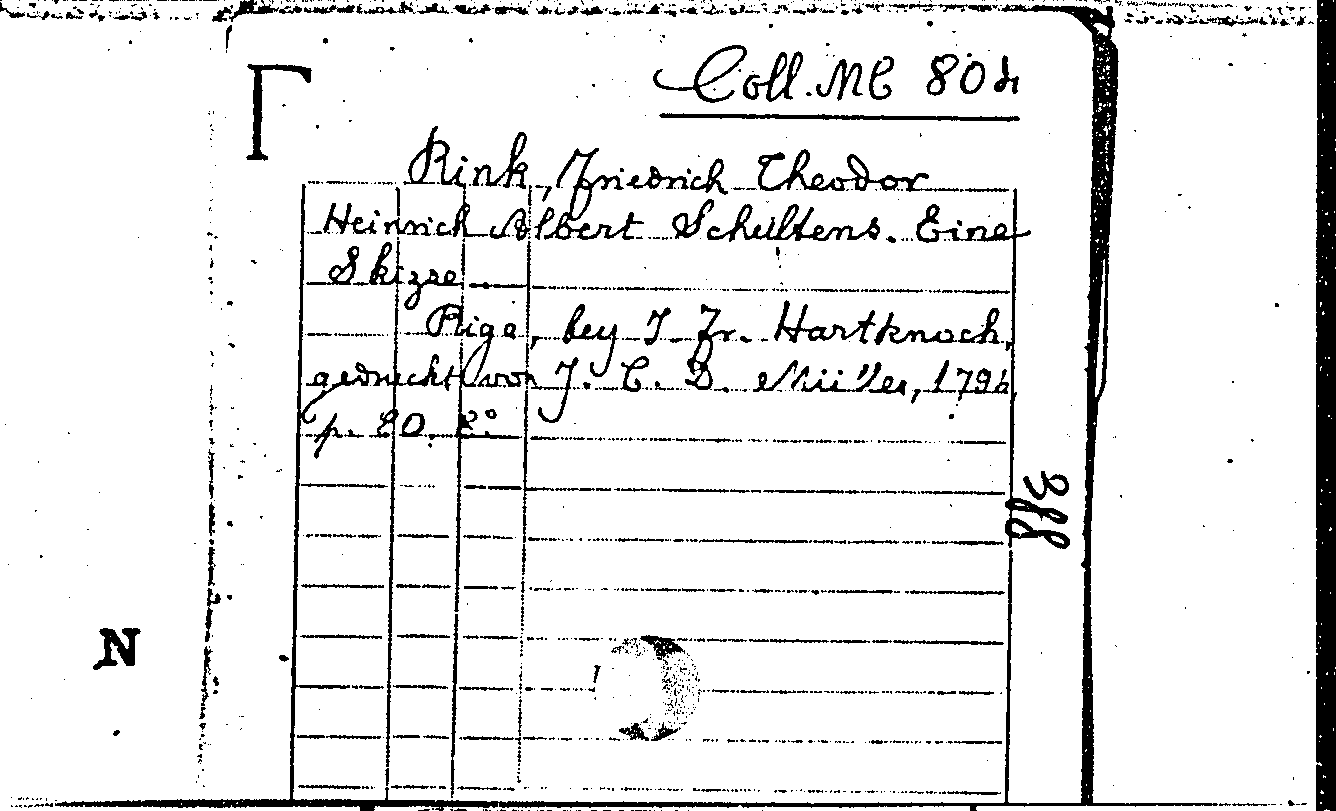 Coll. MC 804
Rink, Friedrich Theodor
Heinrich Albert Schultens. Eine
Skizze
Riga, bey J. Fr. Hartknoch,
gedruckt von J. C. D. Müller, 1794
p. 80. 8°
388
N